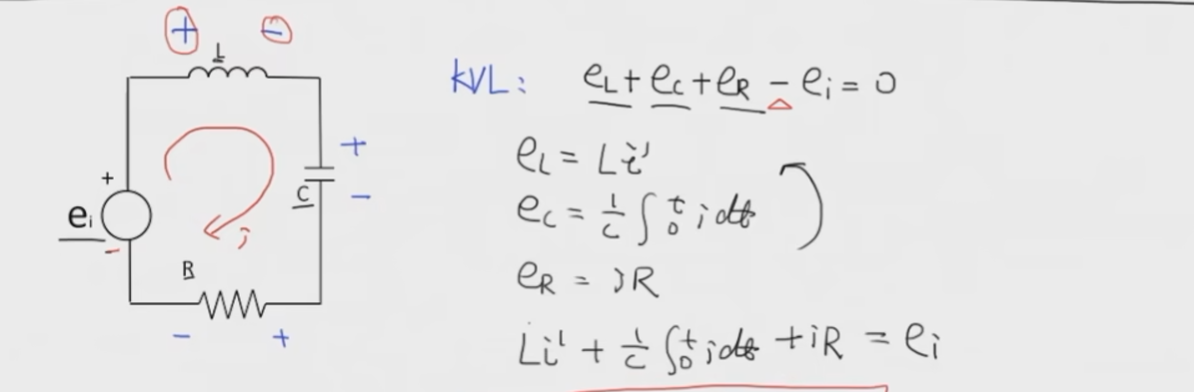 + −
L
+
C
−
+
eᵢ
−
i
R
− +
KVL: e_L + e_C + e_R − eᵢ = 0
e_L = Li'
e_C = 1/C ∫₀ᵗ i dt
e_R = iR
Li' + 1/C ∫₀ᵗ i dt + iR = eᵢ